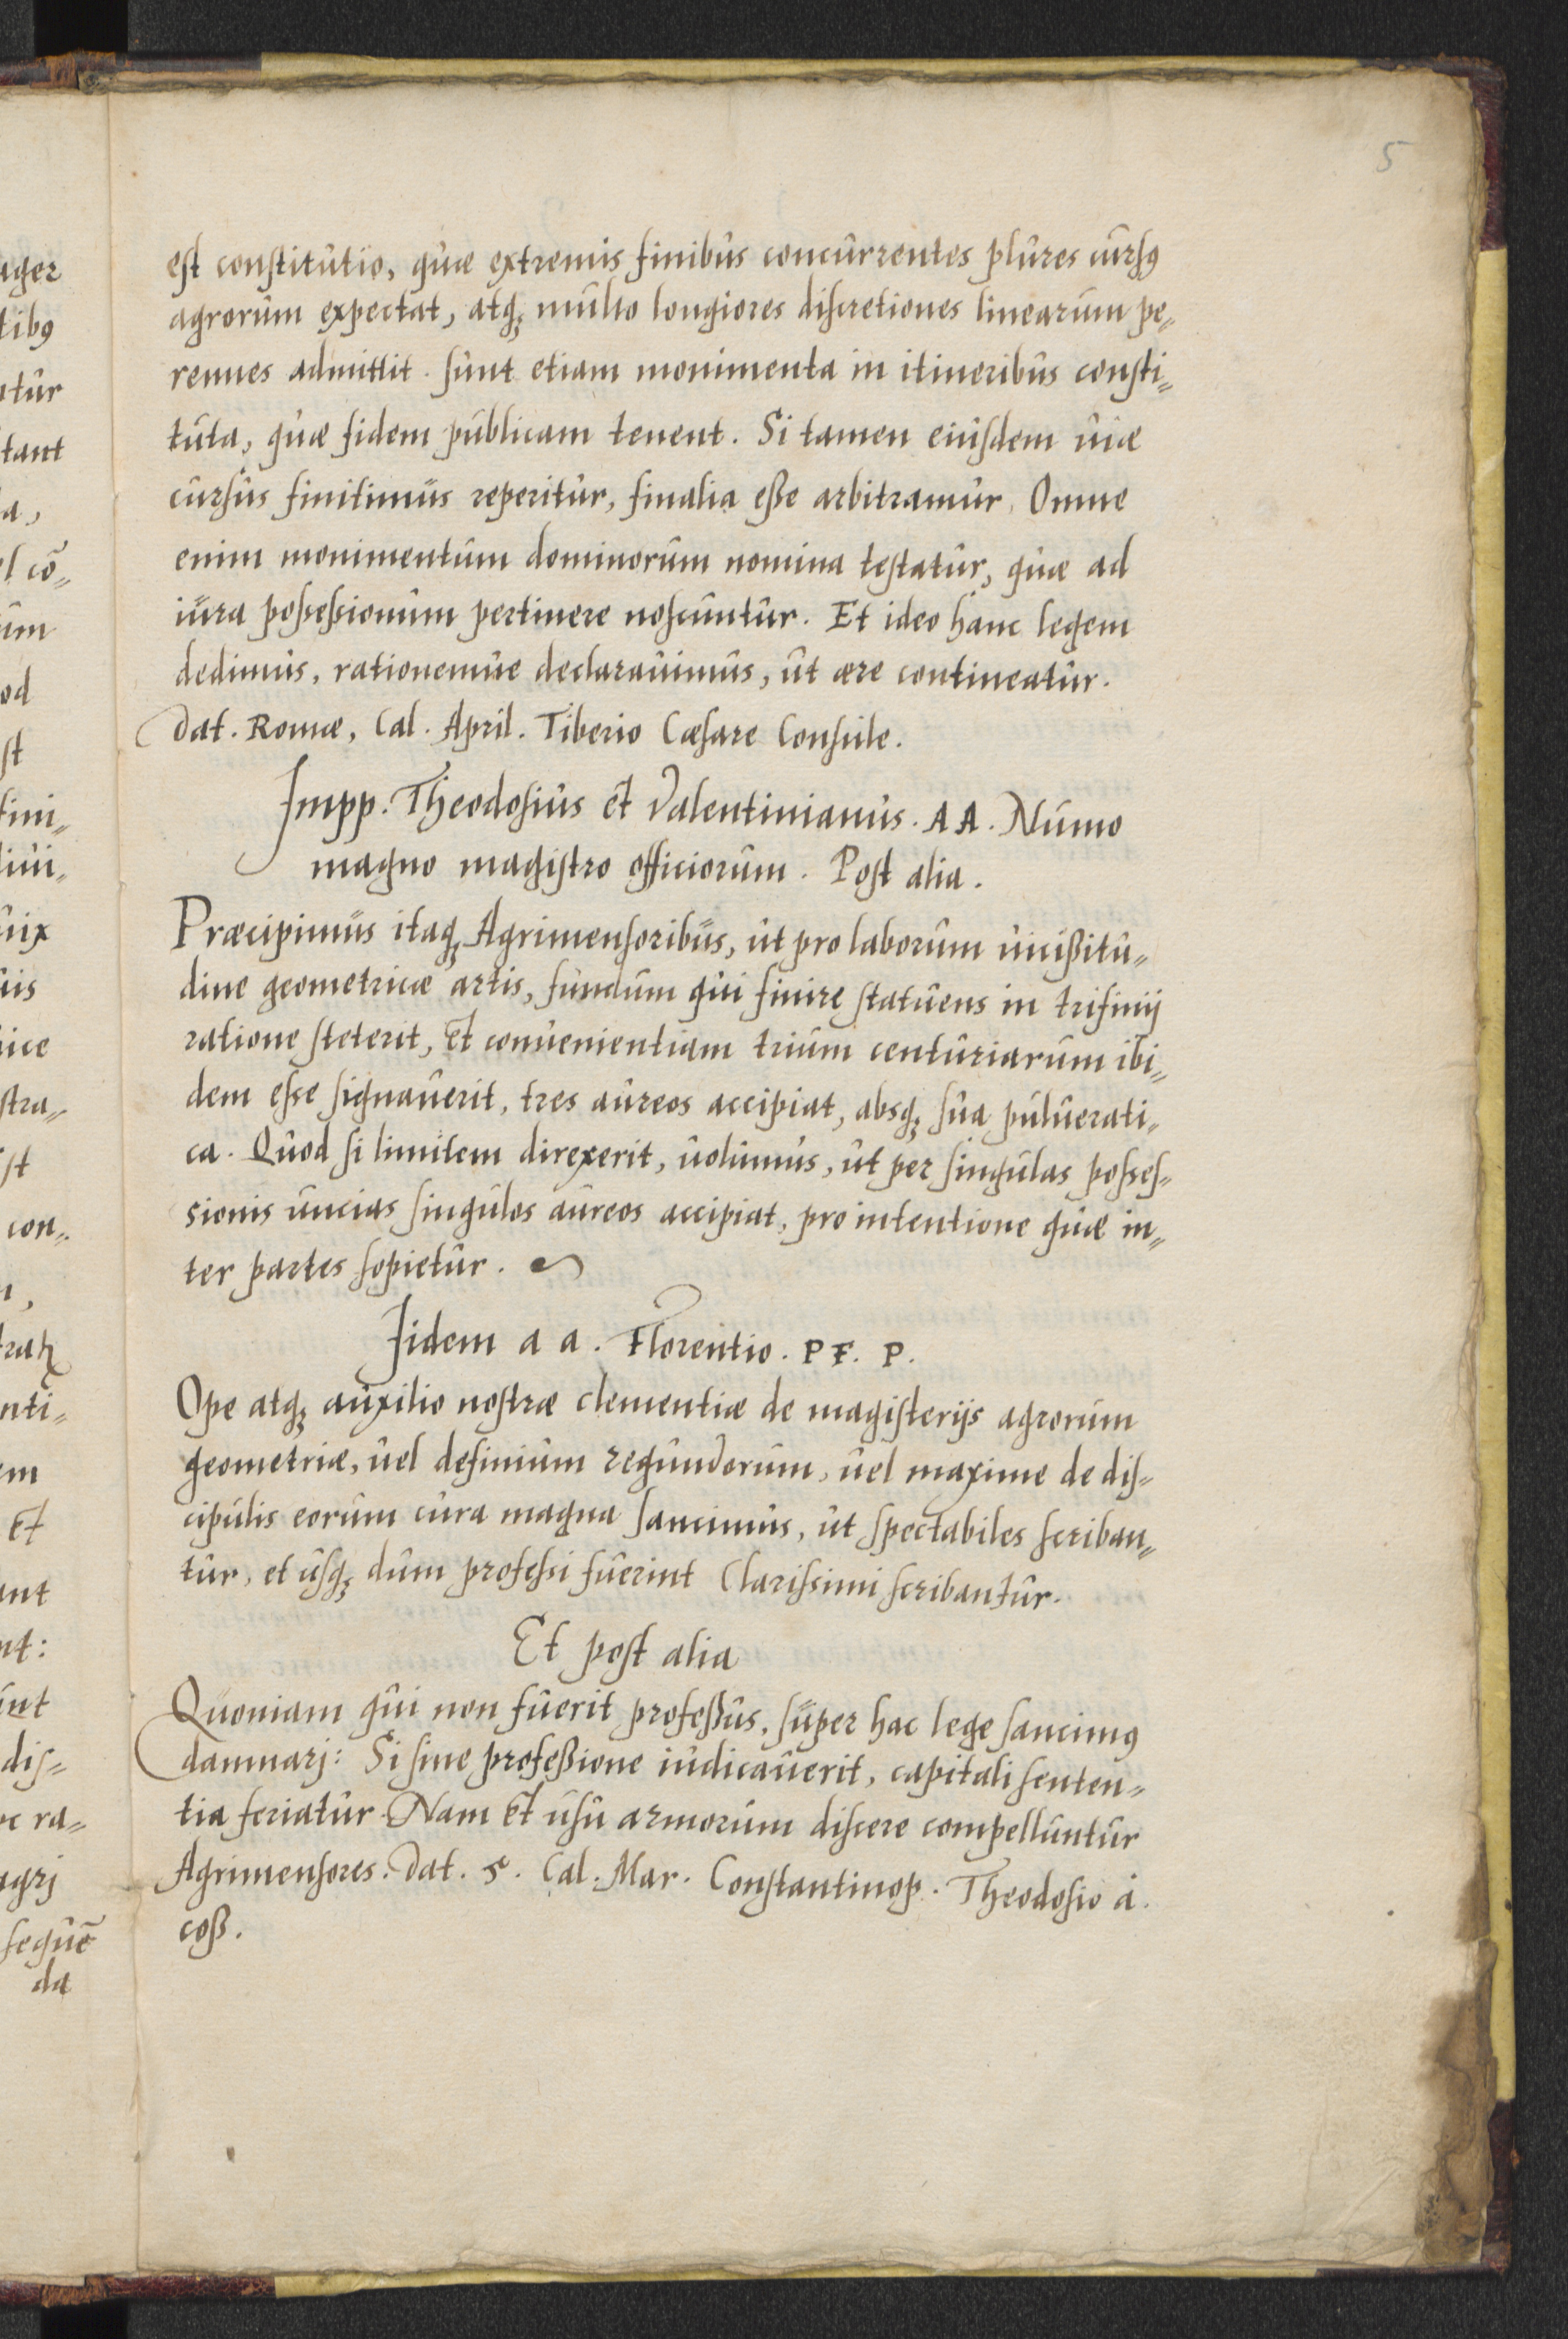 5
est constitutio, quæ extremis finibus concurrentes plures cursꝰ
agrorum expectat, atqꝫ multo longiores discretiones linearum pe=
rennes admittit. sunt etiam monimenta in itineribus consti=
tuta, quæ fidem publicam tenent. Si tamen eiusdem uiæ
cursus finitimus reperitur, finalia eße arbitramur. Omne
enim monimentum dominorum nomina testatur, quæ ad
iura possessionum pertinere noscuntur. Et ideo hanc legem
dedimus, rationemue declarauimus, ut ære contineatur.
Dat. Romæ, Cal. April. Tiberio Cæsare Consule.
Impp. Theodosius et Valentinianus. AA. Numo
magno magistro officiorum. Post alia.
Præcipimus itaqꝫ Agrimensoribus, ut pro laborum uicißitu=
dine geometricæ artis, fundum qui finire statuens in trifinij
ratione steterit, et conuenientiam trium centuriarum ibi=
dem esse signauerit, tres aureos accipiat, absqꝫ sua puluerati=
ca. Quod si limitem direxerit, uolumus, ut per singulas posses=
sionis uncias singulos aureos accipiat, pro intentione quæ in=
ter partes sopietur.
Iidem a a. Florentio. P F. P.
Ope atqꝫ auxilio nostræ clementiæ de magisterijs agrorum
geometriæ, uel definium regundorum, uel maxime de dis=
cipulis eorum cura magna sancimus, ut spectabiles scriban=
tur, et usqꝫ dum professi fuerint Clarissimi scribantur.
Et post alia
Quoniam qui non fuerit profeßus, super hac lege sancimꝰ
damnarj: Si sine profeßione iudicauerit, capitali senten=
tia feriatur. Nam et usu armorum discere compelluntur
Agrimensores. Dat. 5. Cal. Mar. Constantinop. Theodosio a.
coß.
ager
tibꝰ
tur
tant
a,
l cō=
um
od
st
fini=
uix
uis
stra=
st
con=
nti=
em
et
ant
nt:
unt
dis=
ra=
agrj
sequē
da